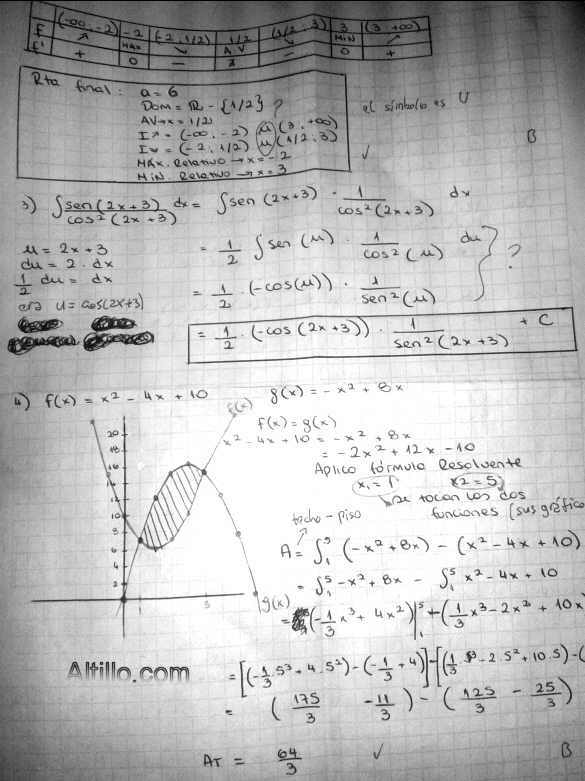 f (-∞, -2) -2 (-2, 1/2) 1/2 (1/2, 3) 3 (3, +∞)
↗ MAX ↘ A.V ↘ MIN ↗
f' + 0 - ∄ - 0 +
Rta final: a = 6
DOM = R - {1/2} ?
AV → x = 1/2
I↗ = (-∞, -2) μ (3, +∞)
I↘ = (-2, 1/2) μ (1/2, 3)
MAX. Relativo → x = -2
MIN. Relativo → x = 3
el símbolo es U
✓ B
3) ∫ sen(2x+3) / cos²(2x+3) dx = ∫ sen(2x+3) · 1 / cos²(2x+3) dx
u = 2x+3 = 1/2 ∫ sen(u) · 1 / cos²(u) du
du = 2 · dx
1/2 du = dx = 1/2 · (-cos(u)) · 1 / sen²(u) ?
era u = cos(2x+3)
= 1/2 · (-cos(2x+3)) · 1 / sen²(2x+3) + C
4) f(x) = x² - 4x + 10 g(x) = -x² + 8x
f(x)
f(x) = g(x)
x² - 4x + 10 = -x² + 8x
= -2x² + 12x - 10
Aplico fórmula Resolvente
x1 = 1 x2 = 5
se tocan las dos
funciones (sus gráfico
techo - piso
A = ∫₁⁵ (-x² + 8x) - (x² - 4x + 10)
= ∫₁⁵ -x² + 8x - ∫₁⁵ x² - 4x + 10
g(x)
= (-1/3 x³ + 4x²)|₁⁵ - (1/3 x³ - 2x² + 10x
20
16
12
10
8
6
4
2
1 5
Altillo.com
= [(-1/3 · 5³ + 4 · 5²) - (-1/3 + 4)] - [(1/3 · 5³ - 2 · 5² + 10 · 5) - (
= (175/3 - 11/3) - (125/3 - 25/3)
AT = 64/3 ✓ B